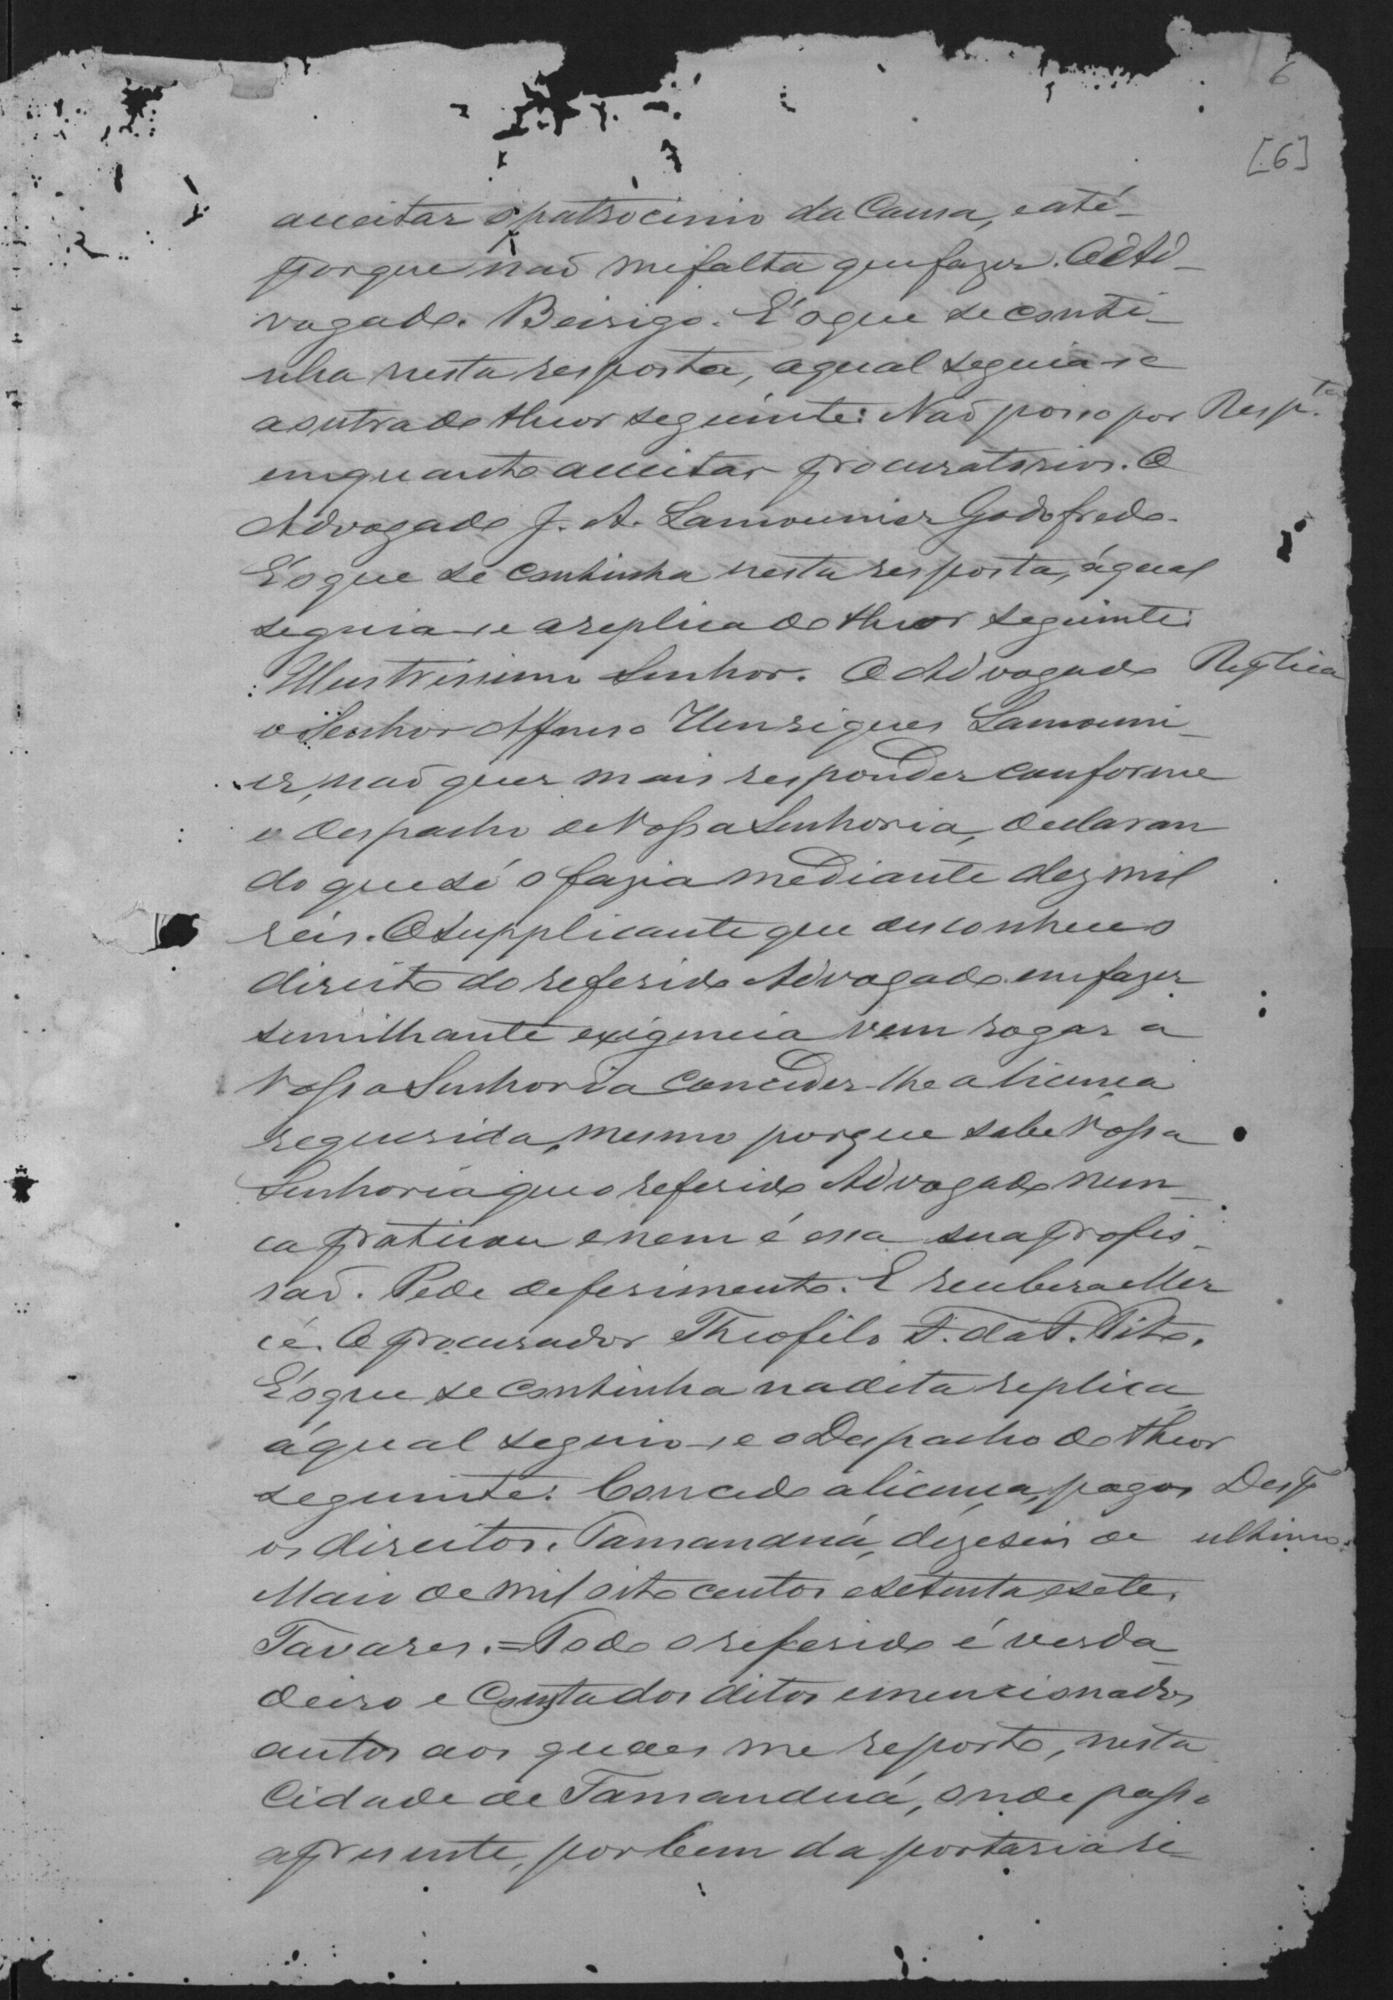 6
[6]
acceitar o patrocinio da Causa, e até
porque não me falta que fazer. O Ad-
vogado. Beirigo. É o que se conti-
nha nesta resposta, a qual seguia-se
a outra do theor seguinte: Não posso por Resp.ta
emquanto acceitar procuratorios. O
Advogado J. A. Lamounier Godofredo.
É o que se continha nesta resposta, á qual
seguia-se a replica do theor seguinte:
Illustrissimo Senhor. O Advogado Replica
o Senhor Affonso Henriques Lamouni-
er, não quer mais responder conforme
o despacho de Vossa Senhoria, declaran
do que só o fazia mediante dez mil
réis. O Supplicante que desconhece o
direito do referido Advogado em fazer
similhante exigencia vem rogar a
Vossa Senhoria conceder-lhe a licença
requerida, mesmo porque sabe Vossa
Senhoria que o referido Advogado nun-
ca praticou e nem é essa sua profis-
são. Pede deferimento. E receberá Mer
cê. O procurador Theofilo F. da P. Pito.
É o que se continha na dita replica
á qual seguio-se o Despacho do theor
seguinte: Concedo a licença, pagos Desp.
os direitos. Tamanduá, dezeseis de ultimo.
Maio de mil oito centos e setenta e sete.
Tavares. = Todo o referido é verda-
deiro e consta dos ditos e mencionados
autos aos quaes me reporto, nesta
Cidade de Tamanduá, onde passo
a presente, por bem da portaria re-